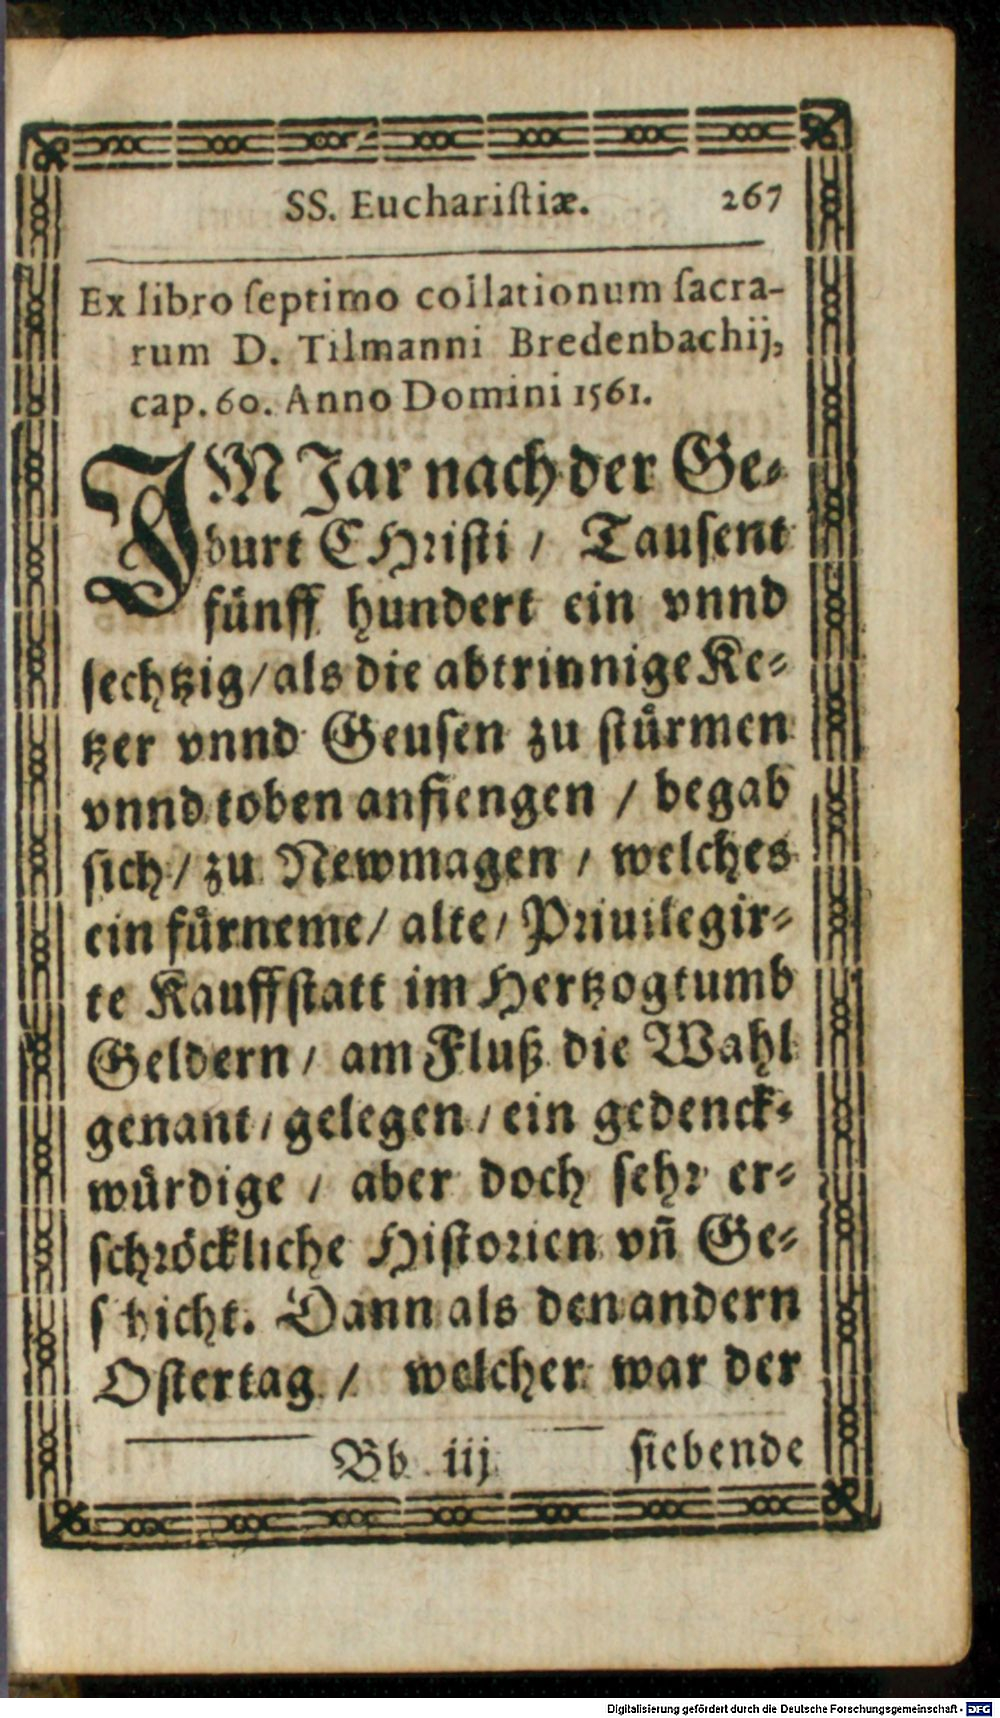 SS. Euchariſtiæ. 267
Ex libro ſeptimo collationum ſacra-
rum D. Tilmanni Bredenbachij,
cap. 60. Anno Domini 1561.
IM Jar nach der Ge-
burt CHriſti / Tauſent
fünff hundert ein vnnd
ſechtzig / als die abtrinnige Ke-
tzer vnnd Geuſen zu ſtürmen
vnnd toben anfiengen / begab
ſich / zu Newmagen / welches
ein fürneme / alte / Priuilegir-
te Kauffſtatt im Hertzogtumb
Geldern / am Fluß die Wahl
genant / gelegen / ein gedenck-
würdige / aber doch ſehr er-
ſchröckliche Hiſtorien vñ Ge-
ſchicht. Dann als den andern
Oſtertag / welcher war der
Bb iij ſiebende
Digitalisierung gefördert durch die Deutsche Forschungsgemeinschaft - DFG